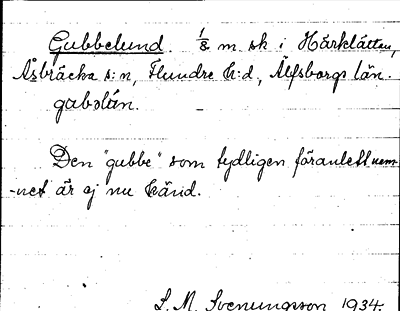 Gubbelund. 1/8 m. sk i Hårklätten,
Åsbräcka s:n, Flundre h:d, Älfsborgs län.
gabəlán.
Den "gubbe" som tydligen föranlett nam-
-net är ej nu känd.
S. M. Svenungsson 1934.